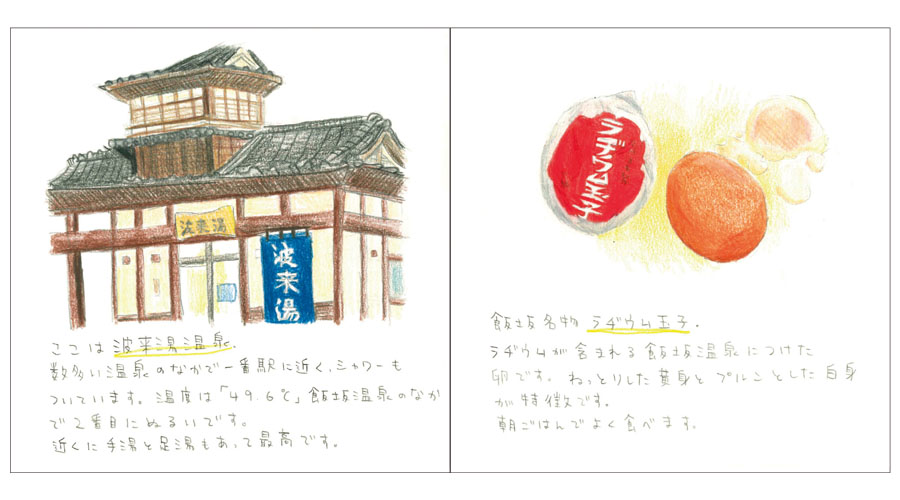 波来湯
波来湯
ここは波来湯温泉.
数多い温泉のなかで一番駅に近く、シャワーも
ついています。温度は「49.6℃」飯坂温泉のなか
で2番目にぬるいです。
近くに手湯と足湯もあって最高です。
ラヂウム玉子
飯坂名物 ラヂウム玉子.
ラヂウムが含まれる飯坂温泉につけた
卵です。ねっとりした黄身とプルンとした白身
が特徴です。
朝ごはんでよく食べます。